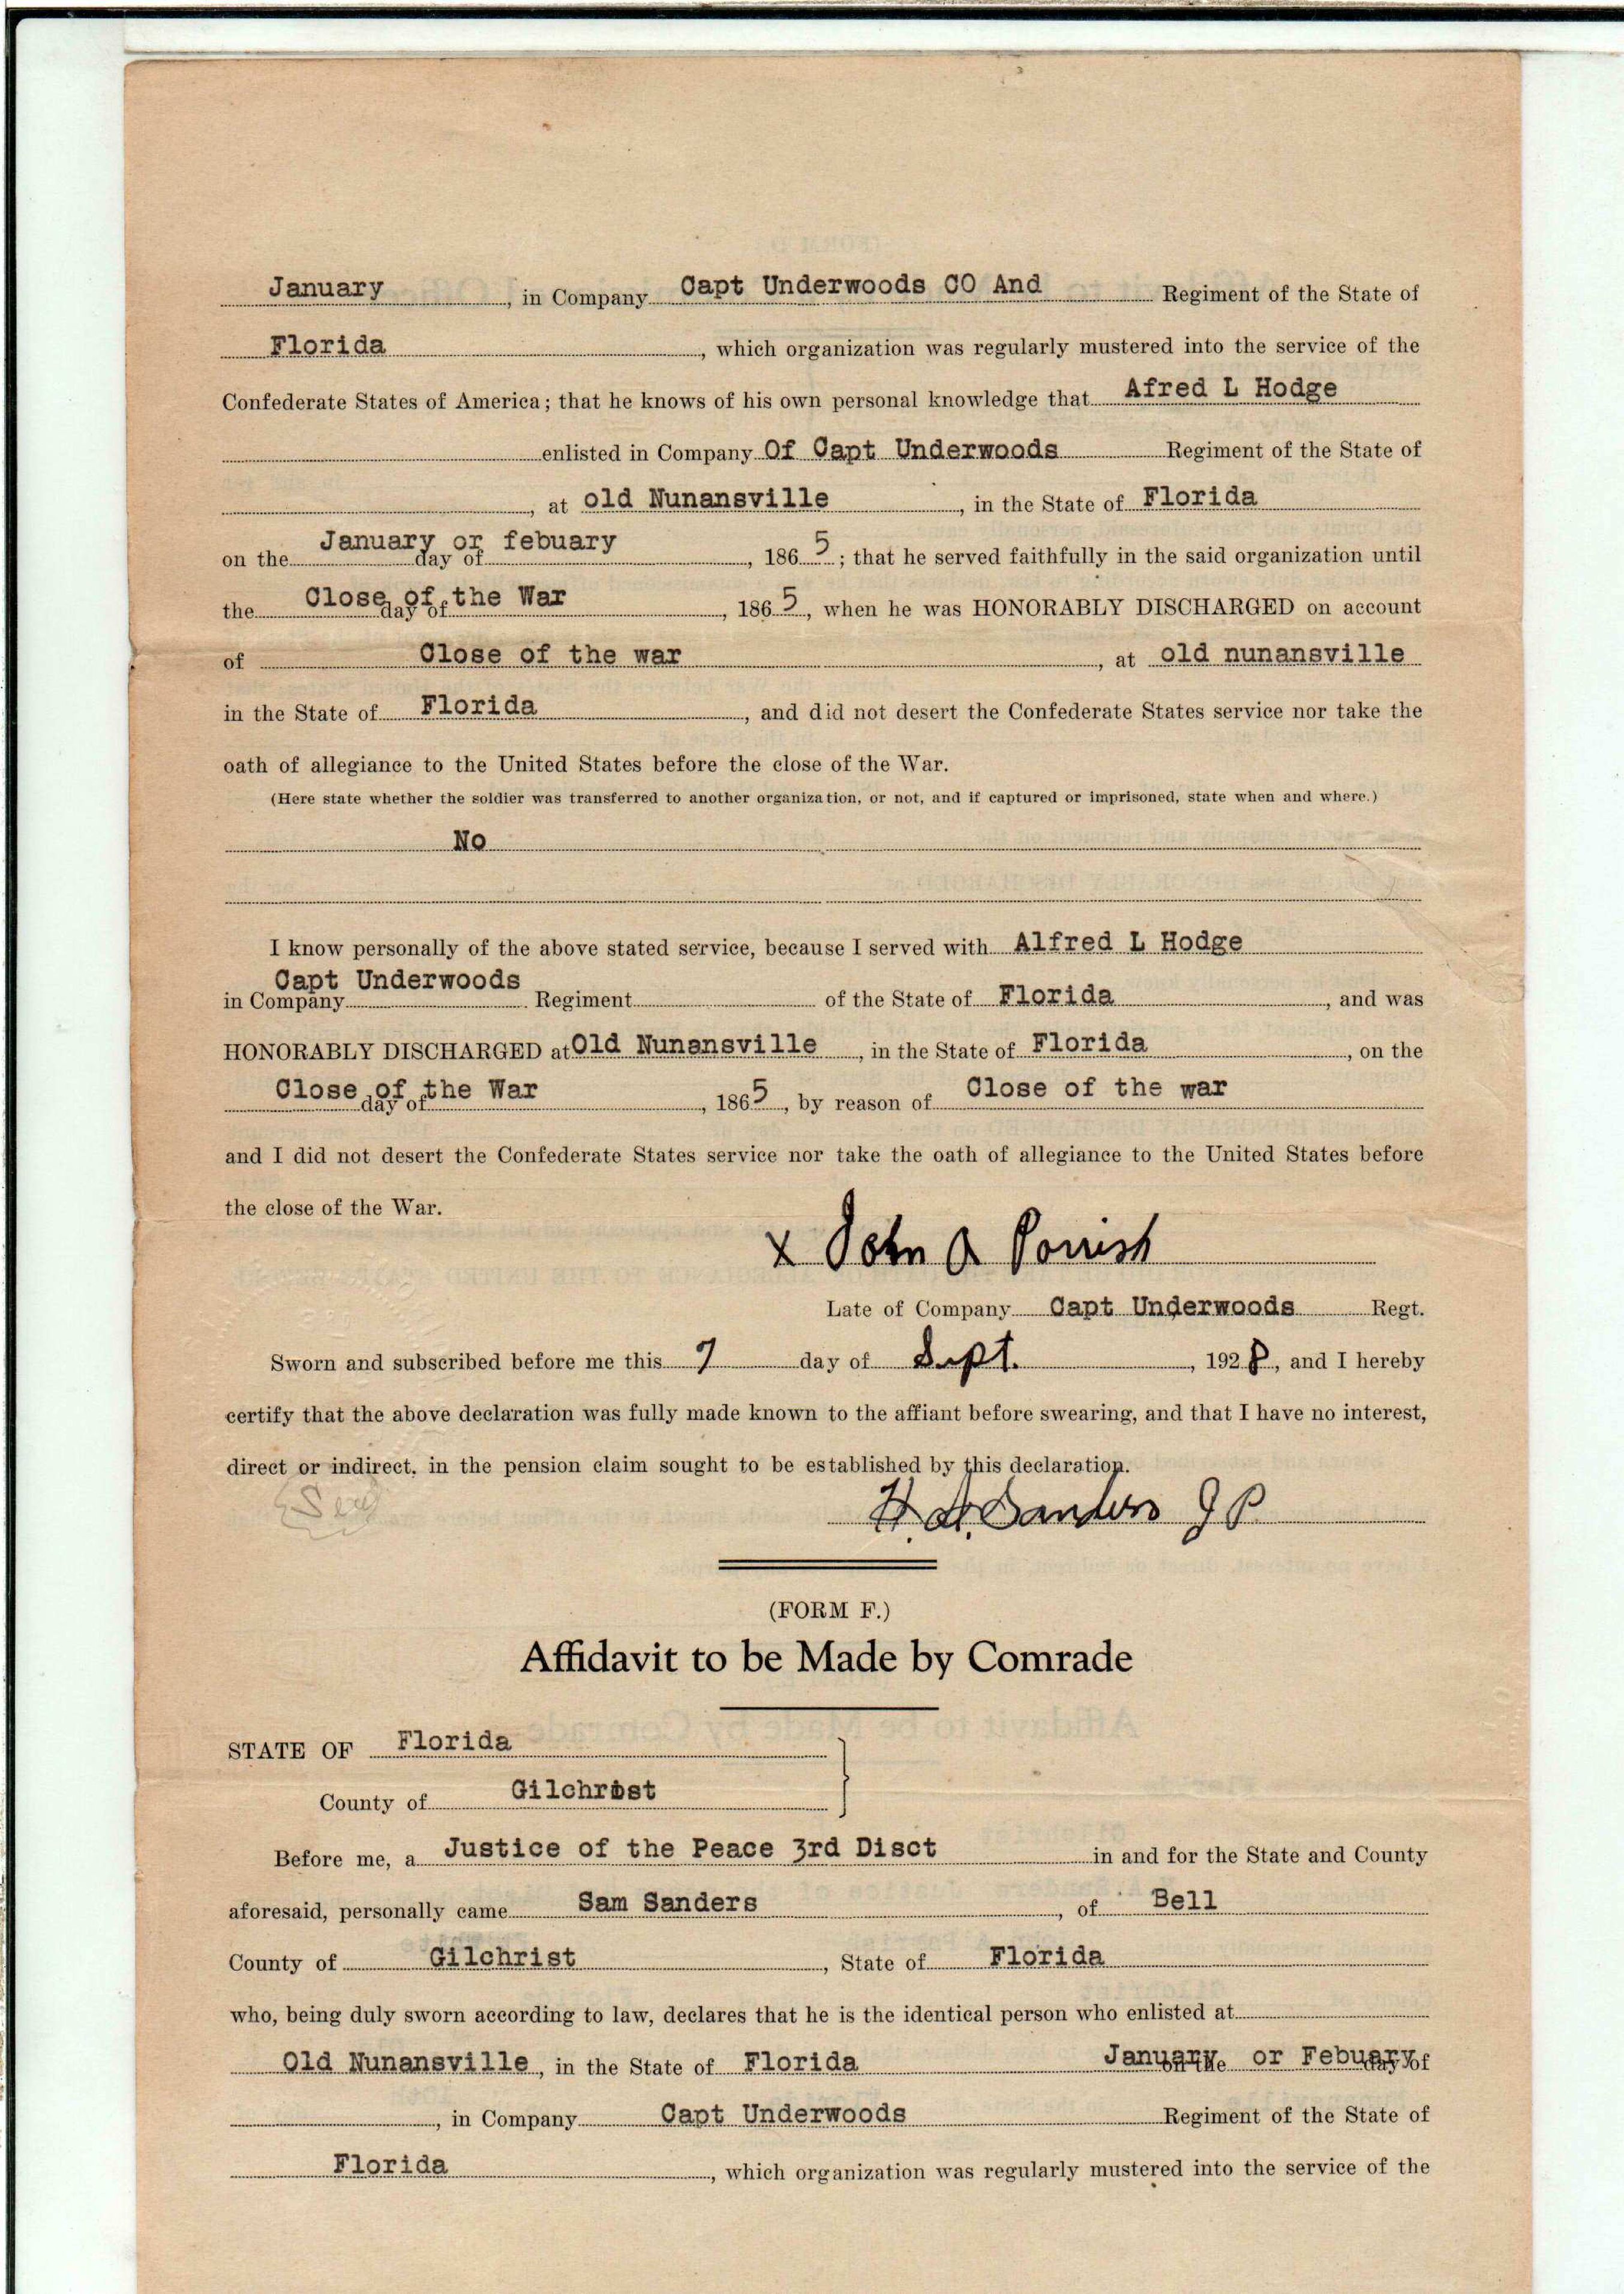 January, in Company Capt Underwoods CO And Regiment of the State of
Florida, which organization was regularly mustered into the service of the
Confederate States of America; that he knows of his own personal knowledge that Afred L Hodge
enlisted in Company Of Capt Underwoods Regiment of the State of
, at old Nunansville, in the State of Florida
on the January or febuary day of, 1865; that he served faithfully in the said organization until
the Close of the War day of, 1865, when he was HONORABLY DISCHARGED on account
of Close of the war, at old nunansville
in the State of Florida, and did not desert the Confederate States service nor take the
oath of allegiance to the United States before the close of the War.
(Here state whether the soldier was transferred to another organization, or not, and if captured or imprisoned, state when and where.)
No
I know personally of the above stated service, because I served with Alfred L Hodge
in Company Capt Underwoods Regiment of the State of Florida, and was
HONORABLY DISCHARGED at Old Nunansville, in the State of Florida, on the
Close of the War day of, 1865, by reason of Close of the war
and I did not desert the Confederate States service nor take the oath of allegiance to the United States before
the close of the War.
x John A Parrish
Late of Company Capt Underwoods Regt.
Sworn and subscribed before me this 7 day of Sept., 1928, and I hereby
certify that the above declaration was fully made known to the affiant before swearing, and that I have no interest,
direct or indirect, in the pension claim sought to be established by this declaration.
(Seal)
H. A. Sanders J P
(FORM F.)
Affidavit to be Made by Comrade
STATE OF Florida
County of Gilchrist
Before me, a Justice of the Peace 3rd Disct in and for the State and County
aforesaid, personally came Sam Sanders, of Bell
County of Gilchrist, State of Florida
who, being duly sworn according to law, declares that he is the identical person who enlisted at
Old Nunansville, in the State of Florida January or Febuary on the day of
, in Company Capt Underwoods Regiment of the State of
Florida, which organization was regularly mustered into the service of the